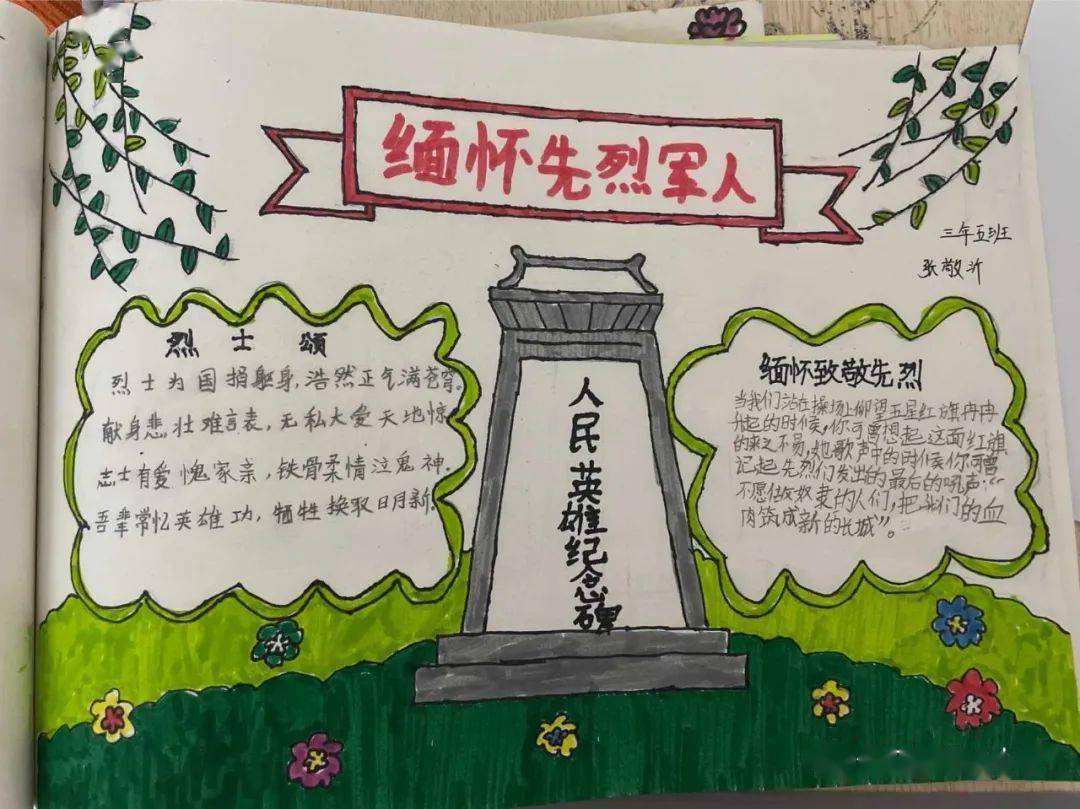 缅怀先烈军人
三年五班
张敬沂
烈士颂
烈士为国捐躯身,浩然正气满苍穹。
献身悲壮难言表,无私大爱天地惊
志士有爱愧家亲,铁骨柔情泣鬼神.
吾辈常忆英雄功,牺牲换取日月新!
人民英雄纪念碑
缅怀致敬先烈
当我们站在操场上仰望五星红旗冉冉
升起的时候,你可曾想起这面红旗
的来之不易,她歌声中的时候你可曾
记起先烈们发出的最后的吼声:“
不愿做奴隶的人们,把我们的血
肉筑成新的长城”。